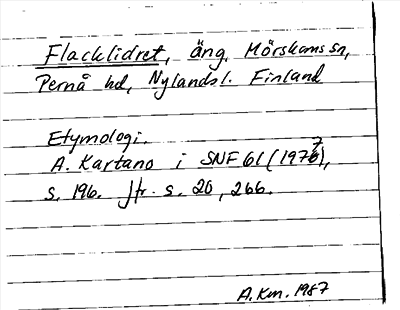 Flacklidret, äng, Mörskoms sn,
Pernå hd, Nylandsl. Finland
Etymologi.
A. Kartano i SNF 61 (1977),
s. 196. Jfr. s. 20, 266.
A.Km. 1987